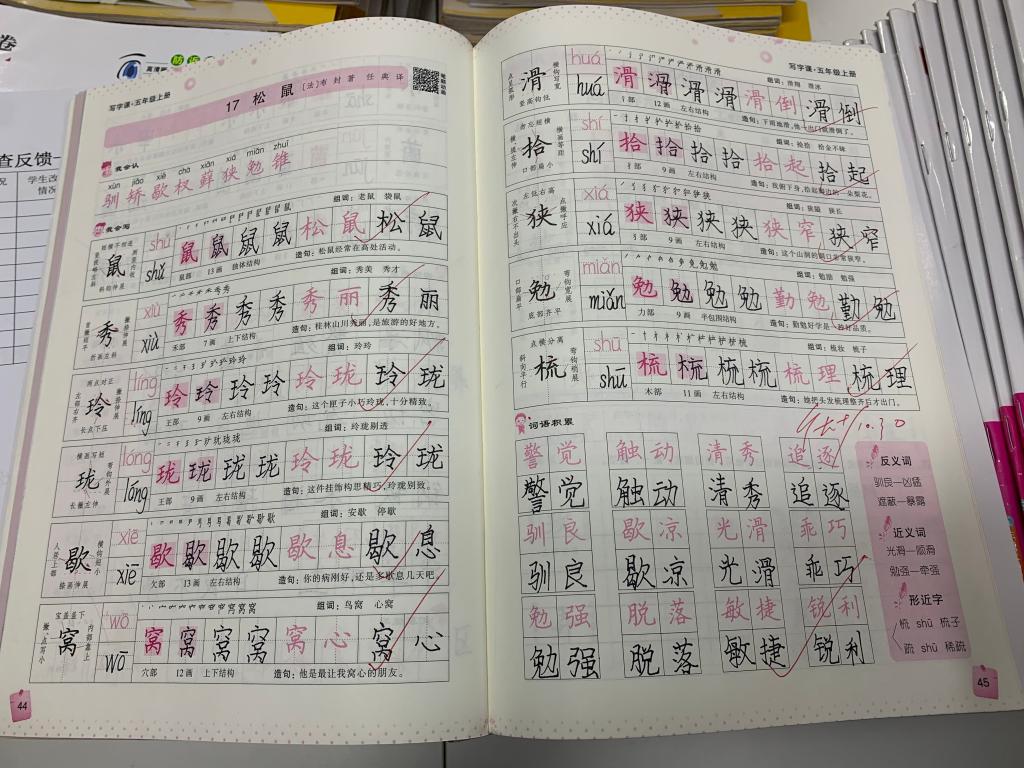 写字课·五年级上册
17 松鼠 〔法〕布封著 任典译
我会认
xùn jiāo xiē chà xiǎn xiá miǎn zhuī
驯矫歇杈藓狭勉锥
我会写
shǔ 鼠 鼠 鼠 鼠 松 鼠 松 鼠
组词：老鼠 袋鼠
shǔ
鼠部 13画 独体结构 造句：松鼠经常在高处活动。
xiù 秀 秀 秀 秀 秀 丽 秀 丽
组词：秀美 秀才
xiù
禾部 7画 上下结构 造句：桂林山川秀丽，是旅游的好地方。
líng 玲 玲 玲 玲 玲 珑 玲 珑
组词：玲玲
líng
王部 9画 左右结构 造句：这个匣子小巧玲珑，十分精致。
lóng 珑 珑 珑 珑 玲 珑 玲 珑
组词：玲珑剔透
lóng
王部 9画 左右结构 造句：这件挂饰构思精巧，玲珑别致。
xiē 歇 歇 歇 歇 歇 息 歇 息
组词：安歇 停歇
xiē
欠部 13画 左右结构 造句：你的病刚好，还是多歇息几天吧。
wō 窝 窝 窝 窝 窝 心 窝 心
组词：鸟窝 心窝
wō
穴部 12画 上下结构 造句：他是最让我窝心的朋友。
44
写字课·五年级上册
huá 滑 滑 滑 滑 滑 倒 滑 倒
组词：滑翔 滑冰
huá
氵部 12画 左右结构
shí 拾 拾 拾 拾 拾 起 拾 起
组词：捡拾 拾金不昧
shí
扌部 9画 左右结构
xiá 狭 狭 狭 狭 狭 窄 狭 窄
组词：狭隘 狭长
xiá
犭部 9画 左右结构 造句：这个山洞的洞口非常狭窄。
miǎn 勉 勉 勉 勉 勤 勉 勤 勉
组词：勉励 勉强
miǎn
力部 9画 半包围结构 造句：勤勉好学是一种好品质。
shū 梳 梳 梳 梳 梳 理 梳 理
组词：梳妆 梳子
shū
木部 11画 左右结构 造句：她把头发梳理整齐后才出门。
10.30
词语积累
警觉 触动 清秀 追逐
警觉 触动 清秀 追逐
驯良 歇凉 光滑 乖巧
驯良 歇凉 光滑 乖巧
勉强 脱落 敏捷 锐利
勉强 脱落 敏捷 锐利
反义词
驯良—凶猛
遮蔽—暴露
近义词
光滑—顺滑
勉强—牵强
形近字
梳 shū 梳子
疏 shū 稀疏
45
查反馈
学生改
情况
卷